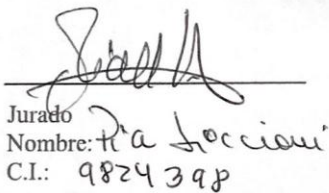 Jurado
Nombre: Pia Loccioni
C.I.: 9824398